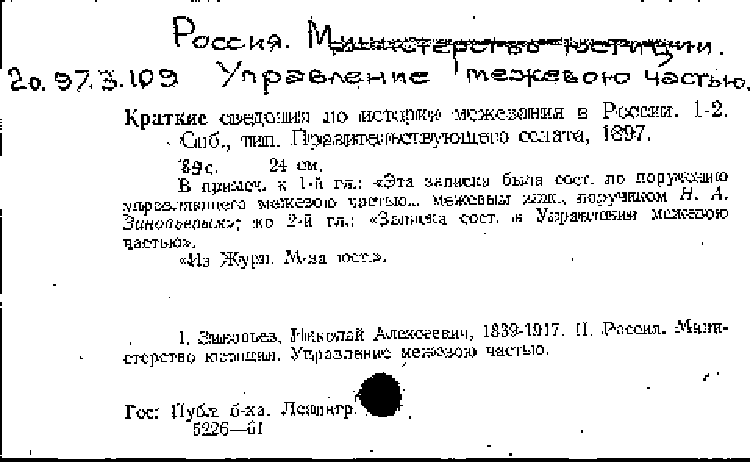 Россия. Министерство юстиции.
20.97.3.109 Управление межевою частью.
Краткие сведения по истории межевания в России. 1-2.
Спб., тип. Правительствующего сената, 1897.
89 с. 24 см.
В примеч. к 1-й гл.: «Эта записка была сост. по поручению
управляющего межевою частью... межевым инж., поручиком Н. А.
Зиновьевым»; ко 2-й гл.: «Записка сост. в Управлении межевою
частью».
«Из Журн. М-ва юст.».
I. Зиновьев, Николай Алексеевич, 1839-1917. II. Россия. Мини-
стерство юстиции. Управление межевою частью.
Гос. Публ. б-ка. Ленингр.
5226—61